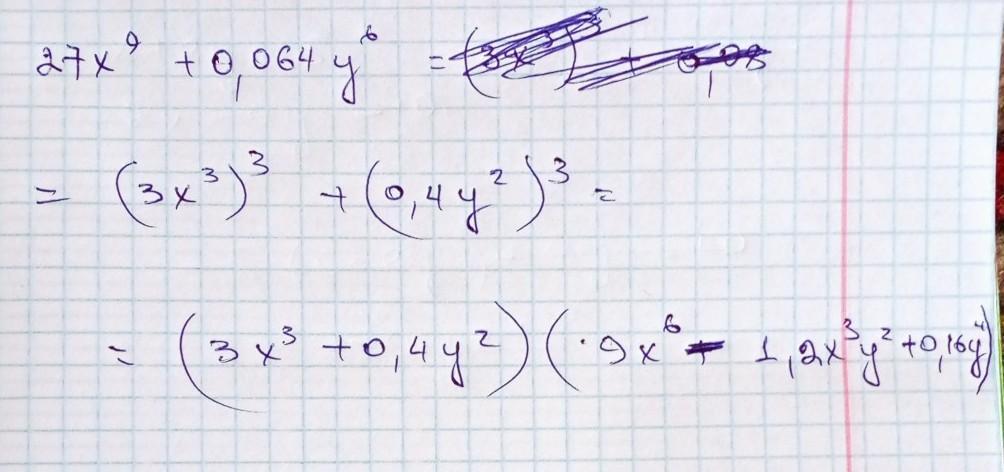 27x⁹ + 0,064 y⁶ =
= (3x³)³ + (0,4y²)³ =
= (3x³ + 0,4y²)(·9x⁶ - 1,2x³y² + 0,16y⁴)